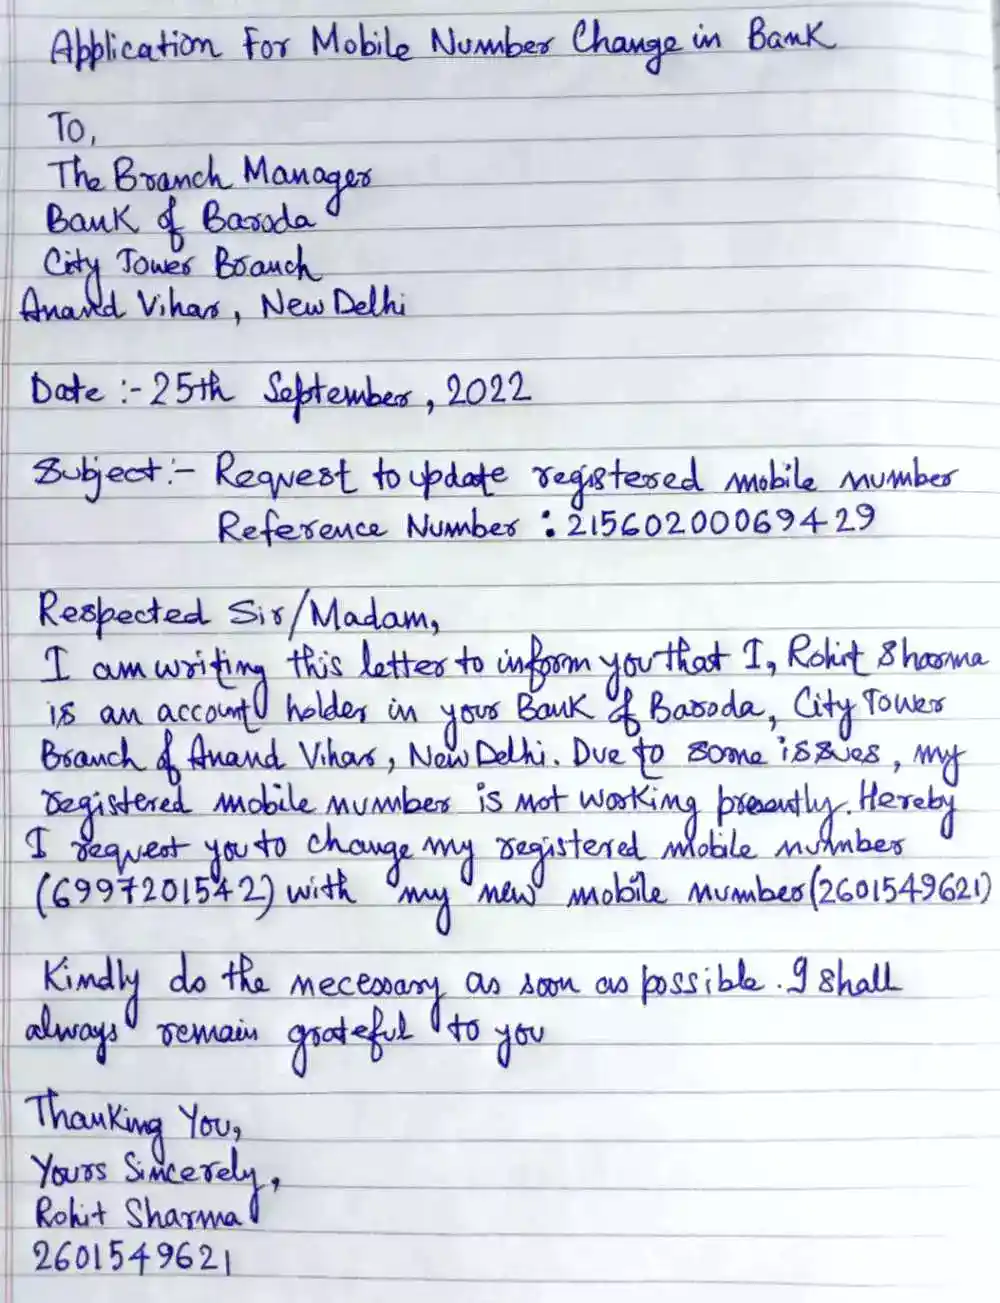 Application For Mobile Number Change in Bank
To,
The Branch Manager
Bank of Baroda
City Tower Branch
Anand Vihar, New Delhi
Date :- 25th September, 2022
Subject :- Request to update registered mobile number
Reference Number : 21560200069429
Respected Sir/Madam,
I am writing this letter to inform you that I, Rohit Sharma
is an account holder in your Bank of Baroda, City Tower
Branch of Anand Vihar, New Delhi. Due to some issues, my
registered mobile number is not working presently. Hereby
I request you to change my registered mobile number
(6997201542) with my new mobile number (2601549621)
Kindly do the necessary as soon as possible. I shall
always remain grateful to you
Thanking You,
Yours Sincerely,
Rohit Sharma
2601549621